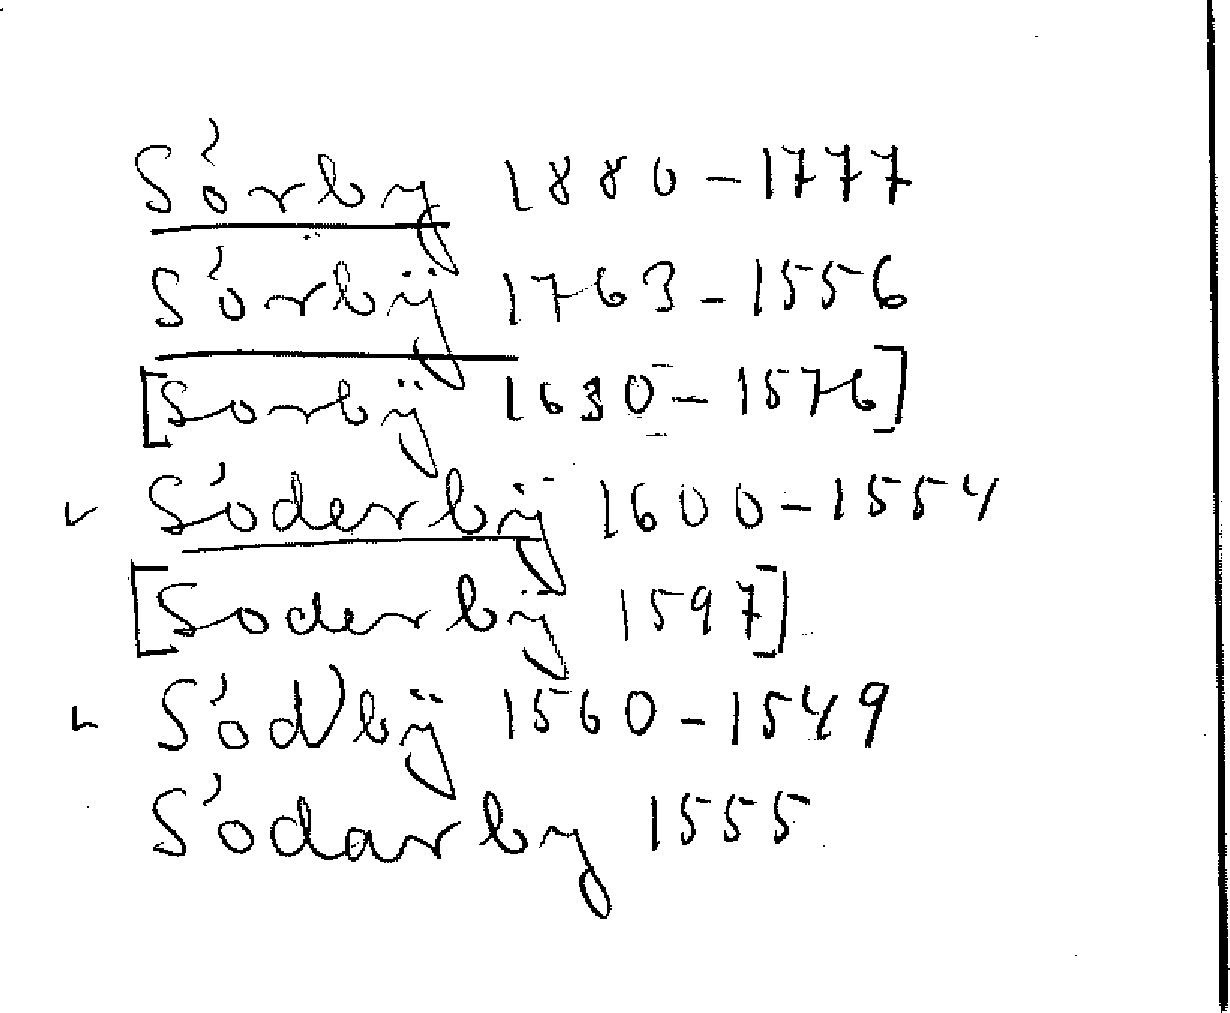 Sörby 1880-1777
Sörbÿ 1763-1556
[Sorbÿ 1630-1576]
Söderbÿ 1600-1554
[Soderbÿ 1597]
Södʼbÿ 1560-1549
Södarby 1555